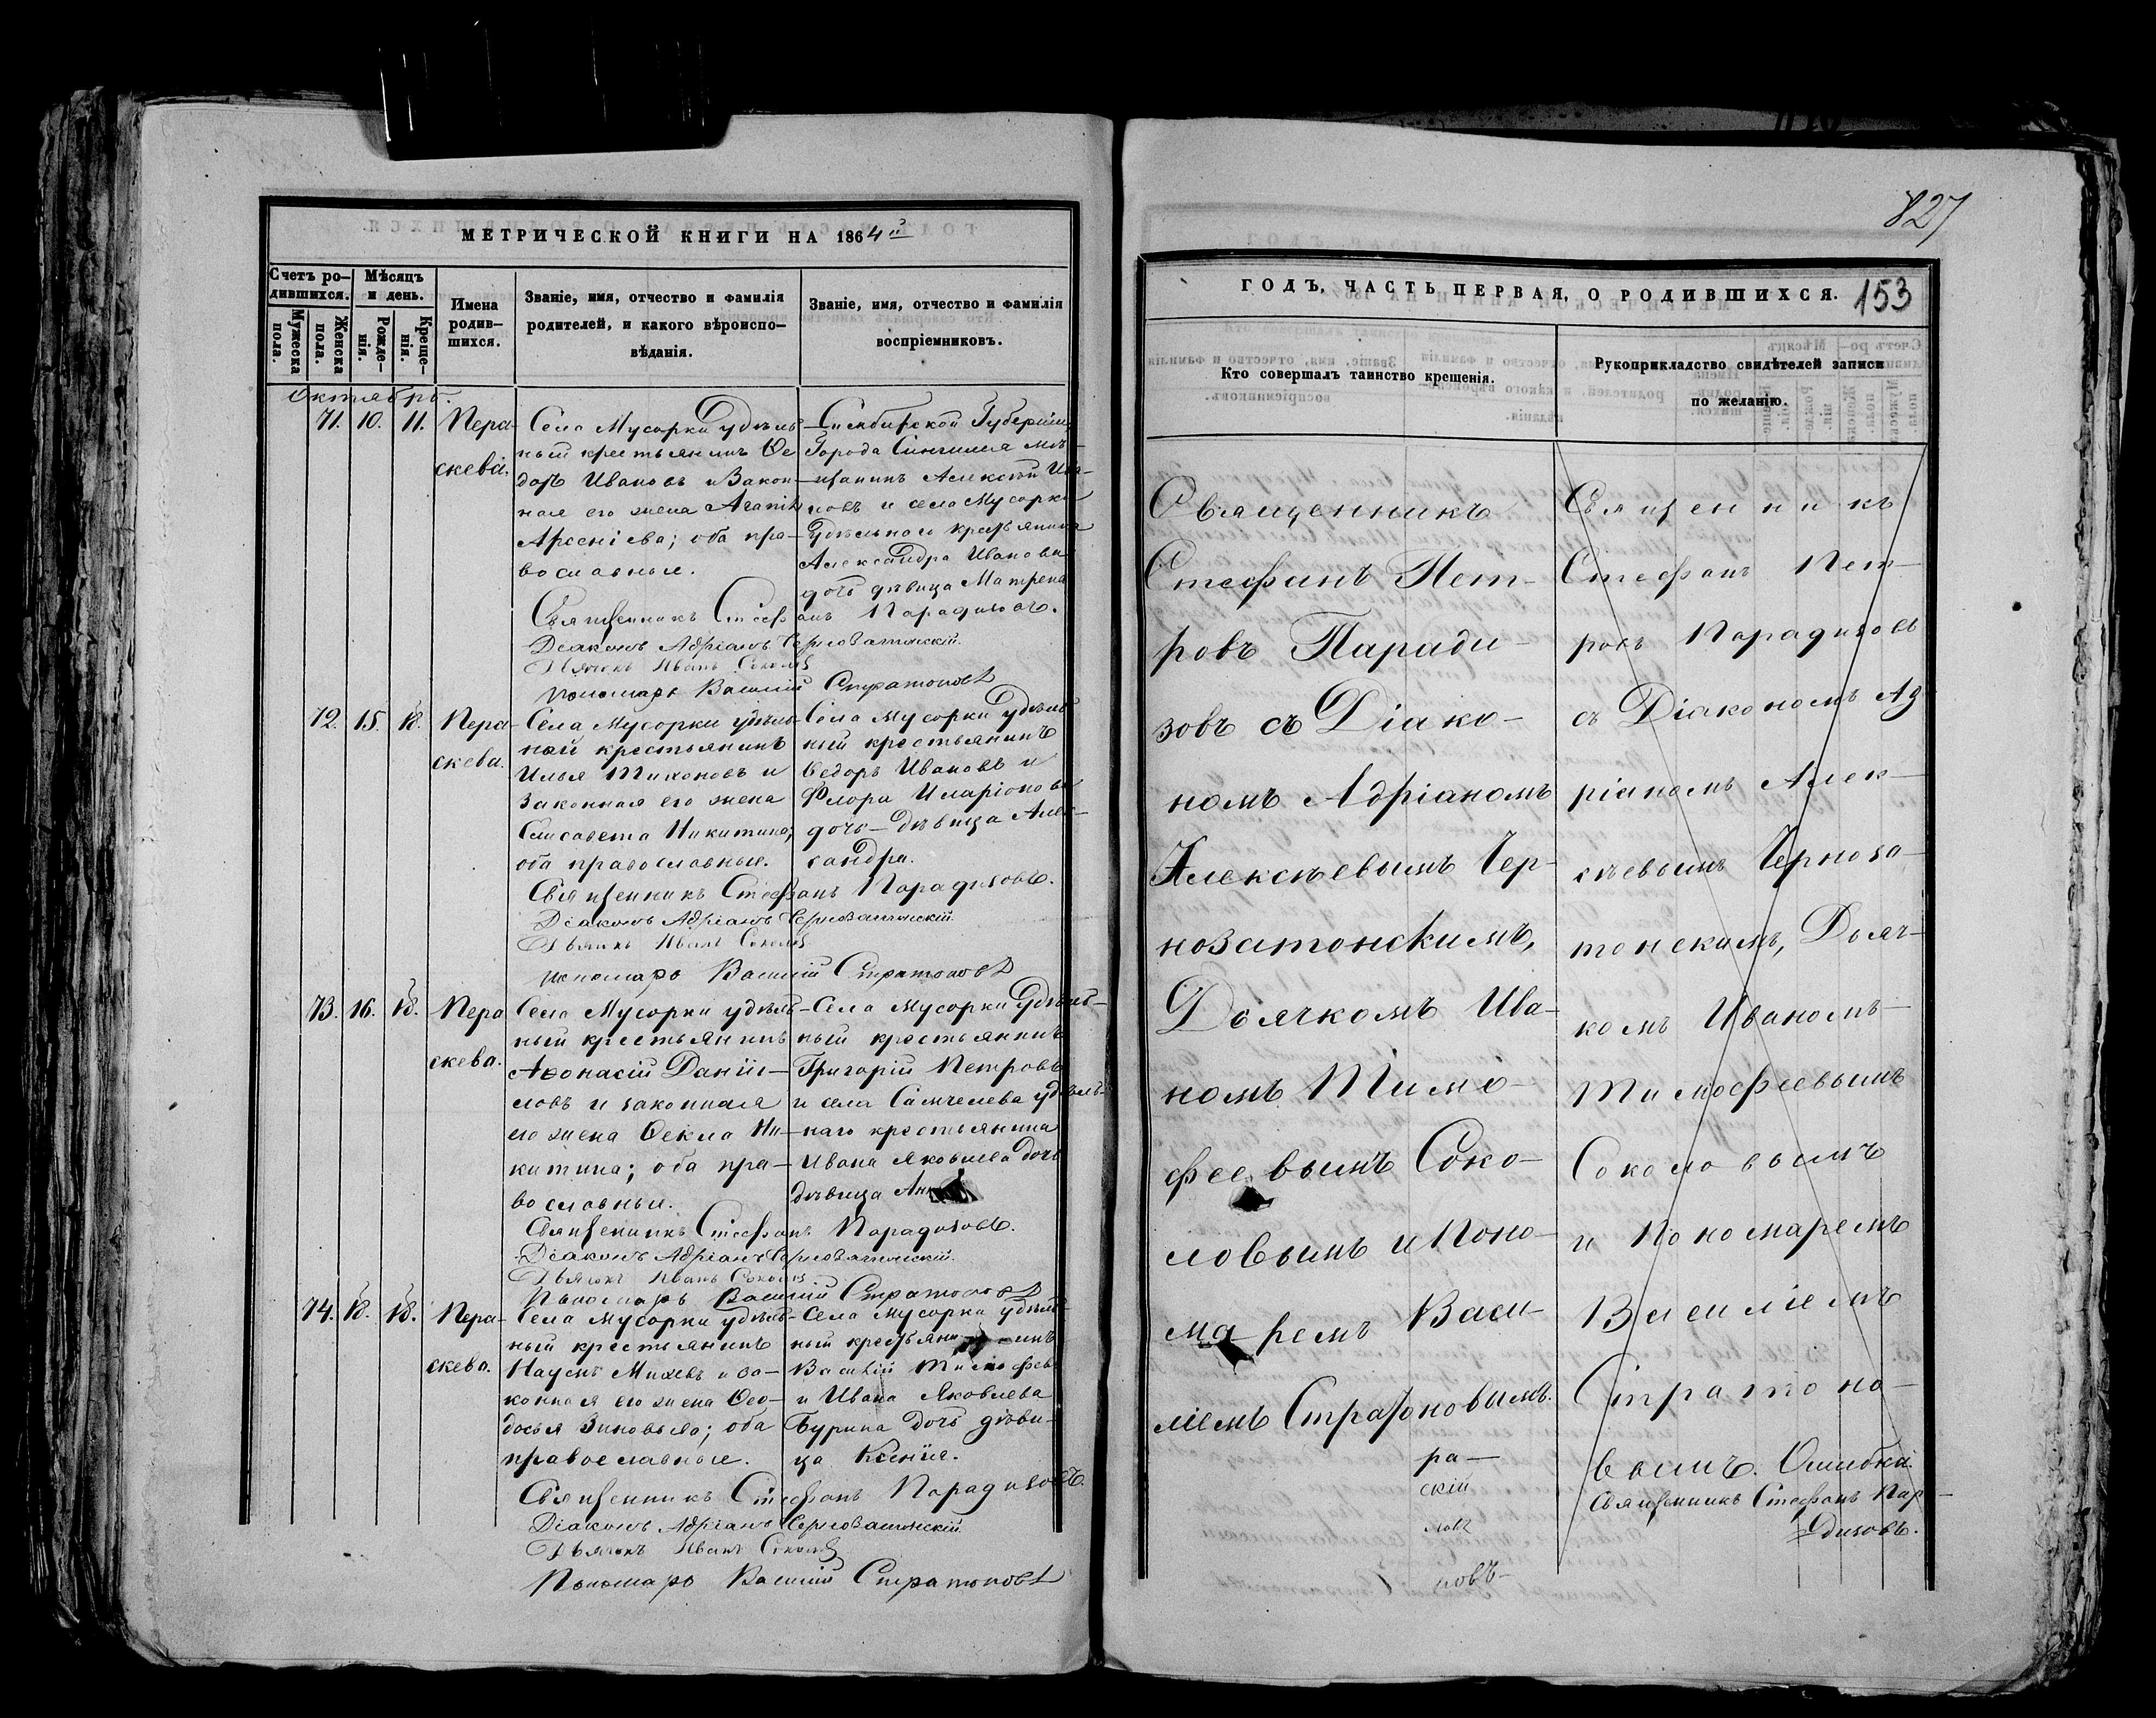 МЕТРИЧЕСКОЙ КНИГИ НА 1864й
Счетъ ро-
дившихся.
Мѣсяцъ
и день.
Мужеска
пола.
Женска
пола.
Рожде-
нія.
Креще-
нія.
Имена
родив-
шихся.
Званіе, имя, отчество и фамилія
родителей, и какого вѣроиспо-
вѣданія.
Званіе, имя, отчество и фамилія
воспріемниковъ.
Октябрь.
71. 10. 11.
Пера-
скева.
Села Мусорки удѣль-
ный крестьянинъ Ѳе
доръ Ивановъ и Закон-
ная его жена
Арсеніева; оба пра-
вославные.
Симбирской Губерніи,
Города Сингилея мѣ-
щанинъ Алексѣй Ива-
новъ и села Мусорки
Удѣльнаго крестьянина
Александра Иванова
дочь дѣвица Матрена
Священникъ Стефанъ Парадизовъ.
Діаконъ Адріанъ Черновзатонскій.
Дьячокъ Иванъ Соколовъ
Пономарь Василій Стратоновъ
72. 15. 18.
Пера-
скева.
Села Мусорки удѣль-
ный крестьянинъ
Илья Тихоновъ и
Законная его жена
Елисавета Никитина;
оба православные.
Села Мусорки Удѣль
ный крестьянинъ
Ѳедоръ Ивановъ и
Флора Иларіонова
дочь-дѣвица Алек-
сандра.
Священникъ Стефанъ Парадизовъ.
Діаконъ Адріанъ Чернозатонскій.
Дьячокъ Иванъ Соколовъ
Пономарь Василій Стратоновъ
73. 16. 18.
Пера
скева.
Села Мусорки удѣль-
ный крестьянинъ
Аѳонасій Даніи-
ловъ и законная
его жена Ѳекла Ни-
китина; оба пра-
вославные.
Села Мусорки Удѣль-
ный крестьянинъ
Григорій Петровъ
и села Самчелева удѣль-
наго крестьянина
Ивана Яковлева дочь
дѣвица
Священникъ Стефанъ Парадизовъ.
Діаконъ Адріанъ Чернозатонскій.
Дьячокъ Иванъ Соколовъ
Пономарь Василій Стратоновъ
74. 18. 18.
Пера-
скева.
Села Мусорки удѣль-
ный крестьянинъ
Наумъ Михевъ и за-
конная его жена Ѳео-
досья Зиновьева; оба
православные.
Села Мусорки удѣль-
ный крестьянинъ
Василій Тимофевъ
и Ивана Яковлева
Бурина дочь дѣви-
ца Ксенія.
Священникъ Стефанъ Парадизовъ.
Діаконъ Адріанъ Чернозатонскій.
Дьячокъ Иванъ Соколовъ
Пономарь Василій Стратоновъ
827
ГОДЪ, ЧАСТЬ ПЕРВАЯ, О РОДИВШИХСЯ.
153
Кто совершалъ таинство крещенія.
Рукоприкладство свидѣтелей записи
по желанію.
Священникъ
Стефанъ Пет-
ровъ Паради-
зовъ съ Діако-
номъ Адріаномъ
Алексѣевымъ Чер-
нозатонскимъ,
Дьячкомъ Ива-
номъ Тимо-
феевымъ Соко-
ловымъ и Поно-
маремъ Васи-
ліемъ Стратоновымъ.
ра-
скій
ловъ
новъ
Священникъ
Стефанъ Пет-
ровъ Парадизовъ
съ Діакономъ Ад
ріаномъ Алек-
сѣевымъ Черноза-
тонскимъ, Дьяч-
комъ Иваномъ
Тимофеевымъ
Соколовымъ
и Пономаремъ
Василіемъ
Стратоно-
вымъ. Ошибкі.
Священникъ Стефанъ Пар-
дизовъ.